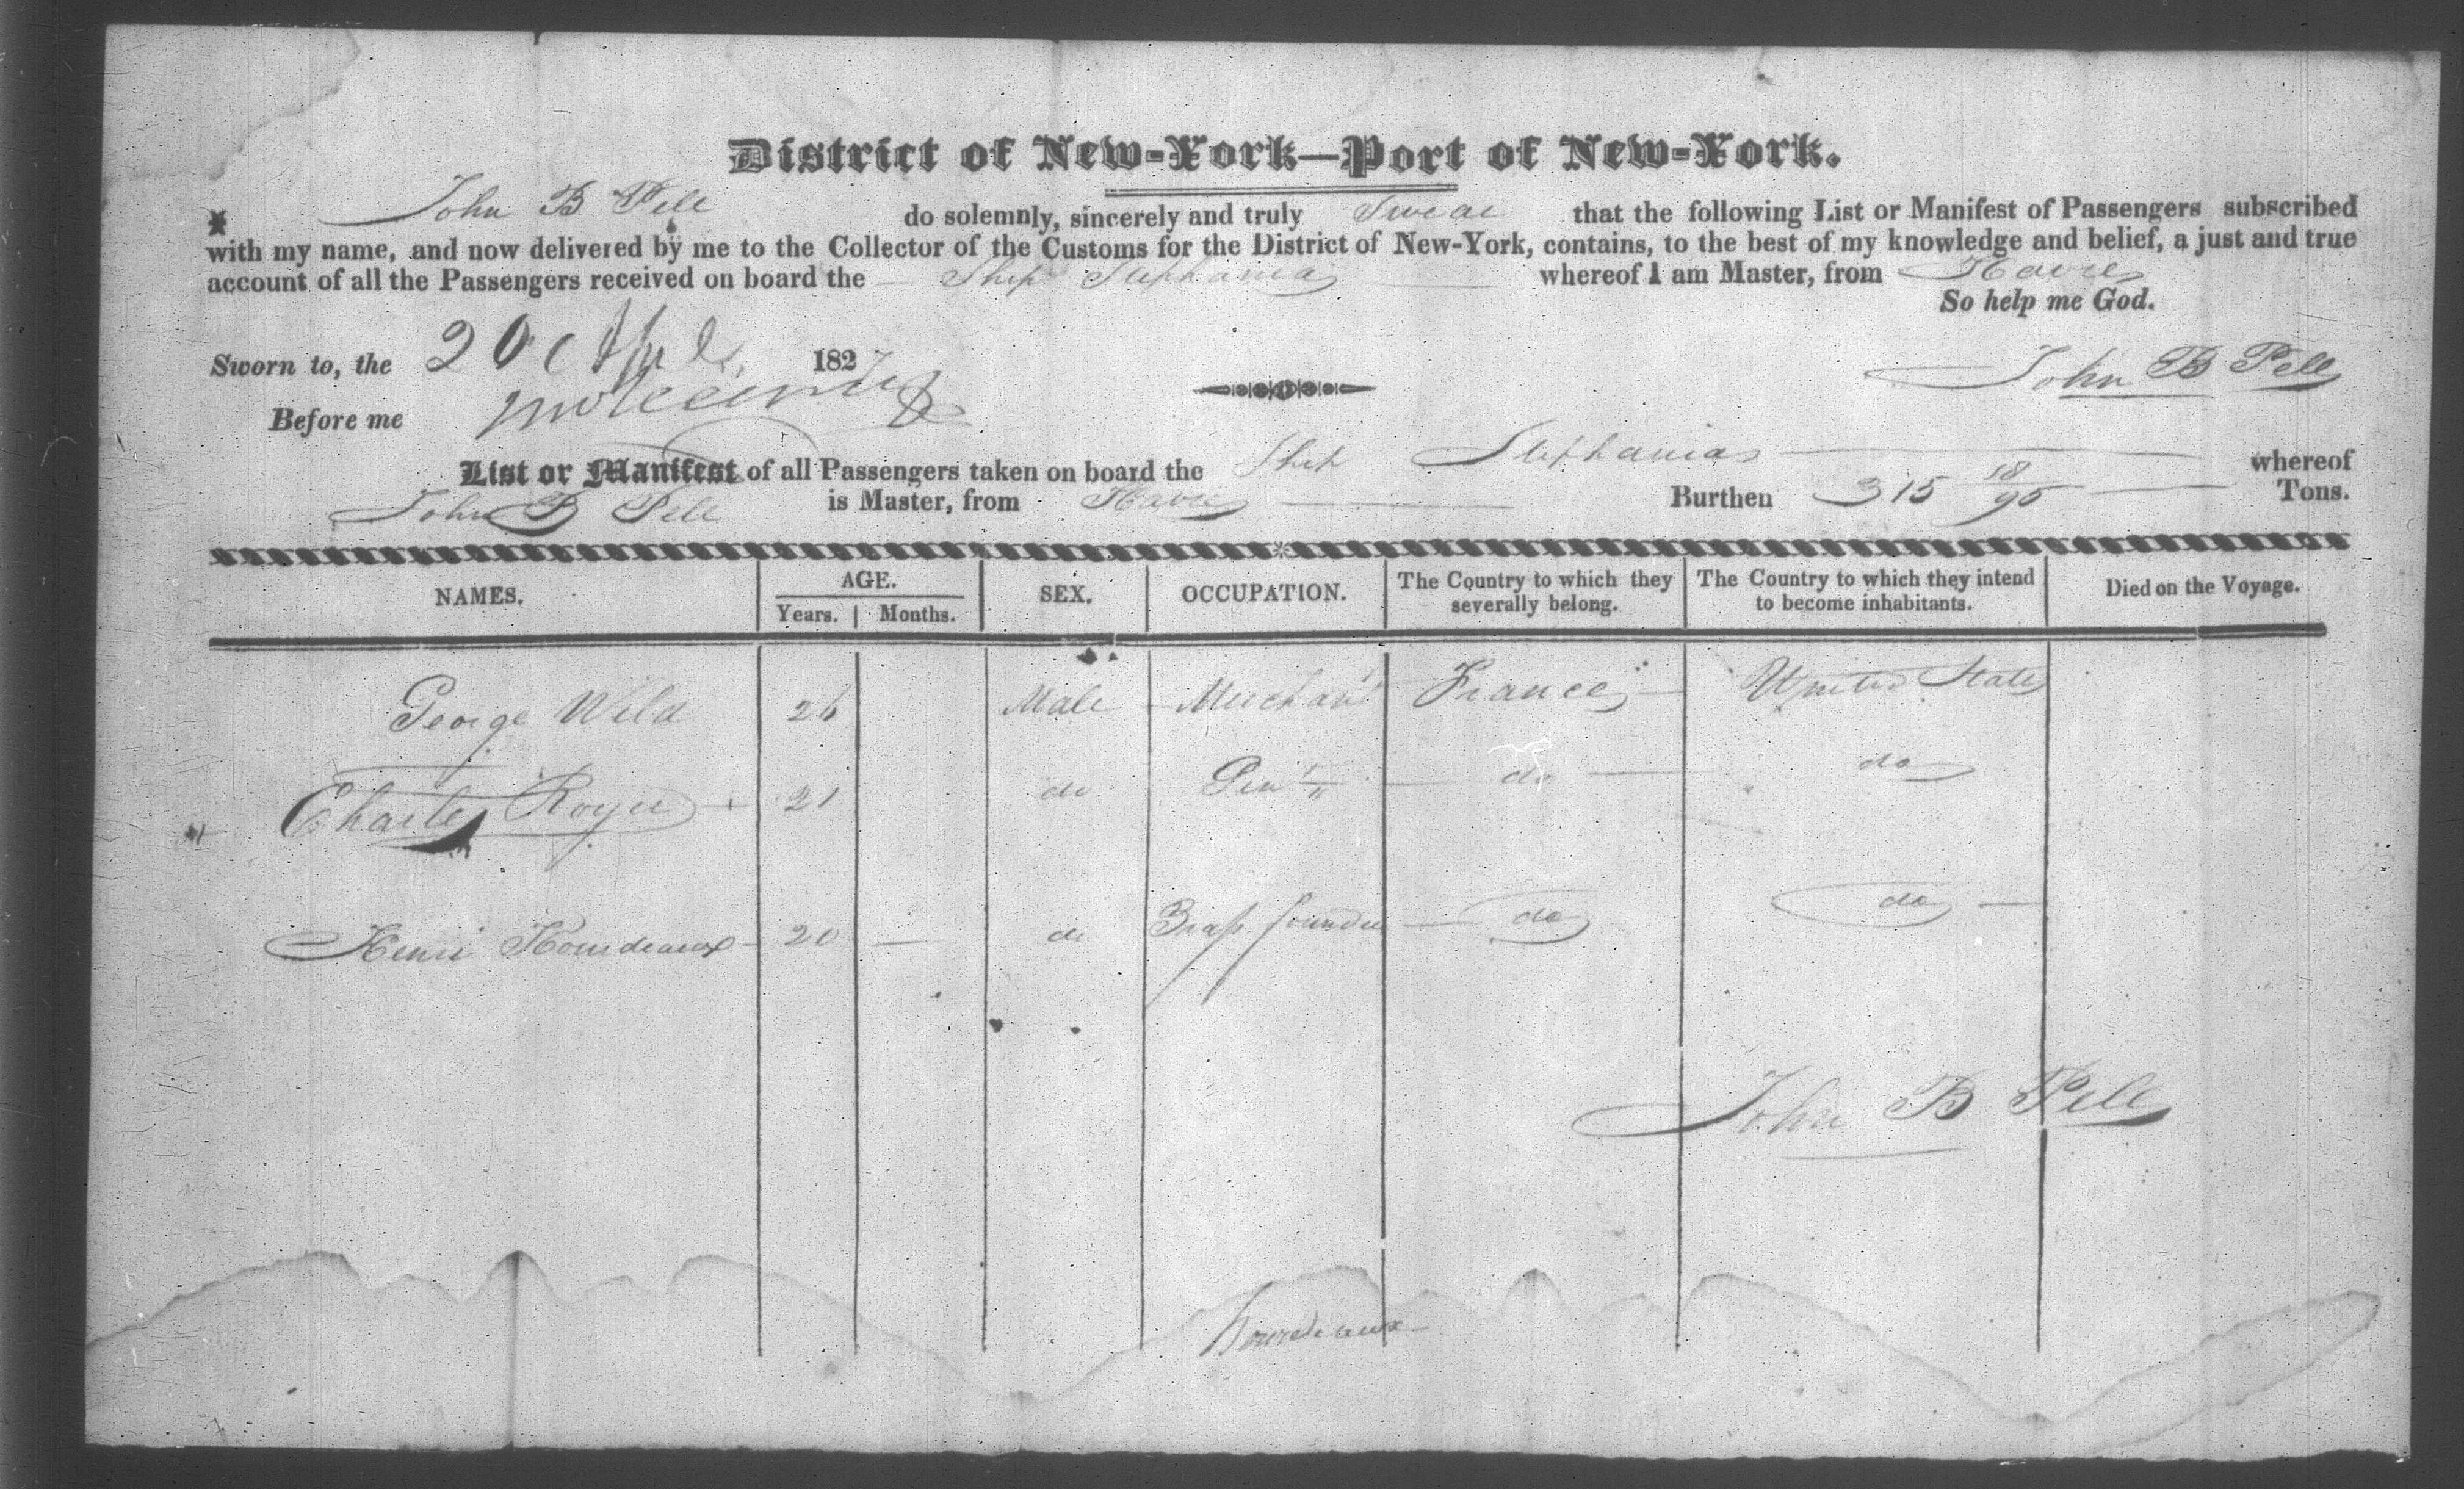 District of New-York—Port of New-York.
I John B Pell do solemnly, sincerely and truly Swear that the following List or Manifest of Passengers subscribed
with my name, and now delivered by me to the Collector of the Customs for the District of New-York, contains, to the best of my knowledge and belief, a just and true
account of all the Passengers received on board the Ship Stephania whereof I am Master, from Havre
So help me God.
Sworn to, the 20 182
John B Pell
Before me
List or Manifest of all Passengers taken on board the Ship Stephania whereof
John B Pell is Master, from Havre Burthen 315 18/95 Tons.
NAMES. AGE. SEX. OCCUPATION. The Country to which they severally belong. The Country to which they intend to become inhabitants. Died on the Voyage.
Years. Months.
George Wild 26 Male Merchant France United States
Charles Royer 21 do do do
Henri Hourdeaux 20 — do Brass founder do do
John B Pell
Hourdeaux